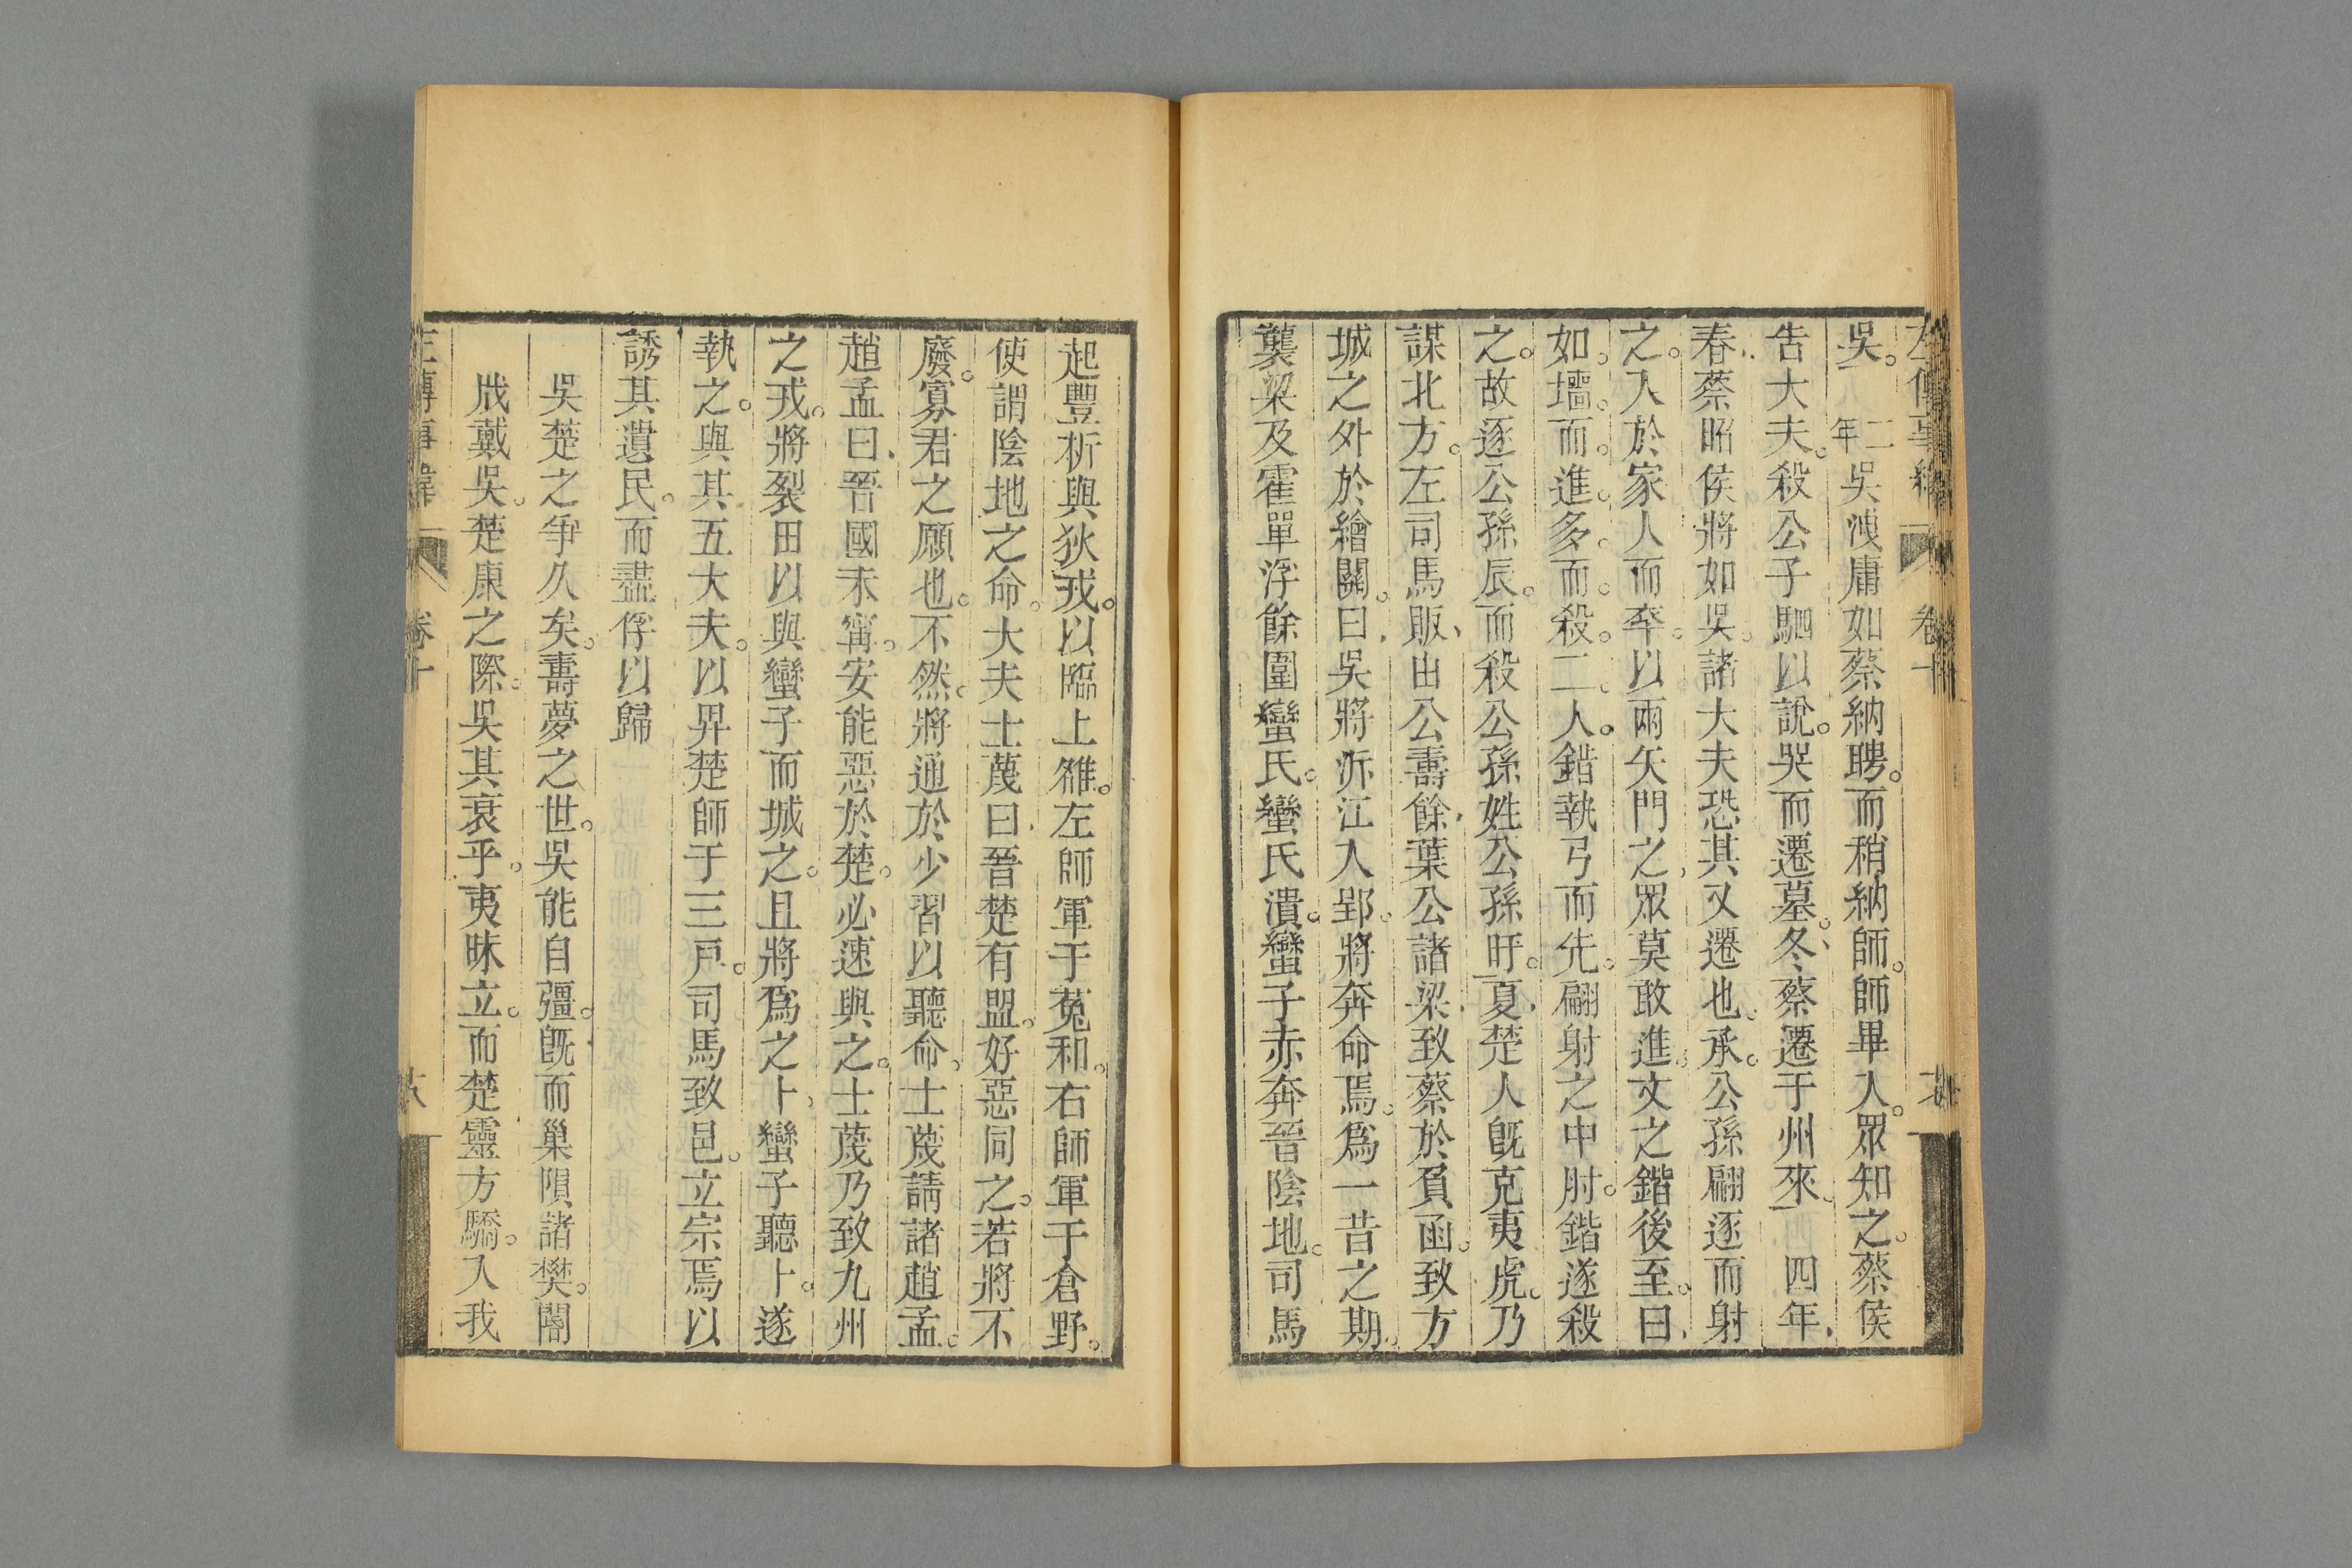 左傳事緯　卷十
吳。二年吳洩庸如蔡納聘。而稍納師。師畢入。眾知之。蔡侯
告大夫。殺公子駟以說。哭而遷墓。冬、蔡遷于州來。四年、
春、蔡昭侯將如吳。諸大夫恐其又遷也。承。公孫翩逐而射
之。入於家人而卒。以兩矢門之、眾莫敢進。文之鍇後至。曰、
如。墻。而。進。多。而。殺。二。人。錯執弓而先。翩射之中肘。鍇遂殺
之。故逐公孫辰。而殺公孫姓公孫盱。夏、楚人旣克夷虎。乃
謀北方。左司馬販、申公壽餘、葉公諸梁、致蔡於負函。致方
城之外於繒關。曰、吳將泝江入郢。將奔命焉。爲一昔之期。
襲梁及霍單浮餘圍蠻氏。蠻氏潰。蠻子赤奔晉陰地。司馬
起豐析與狄戎。以臨上雒。左師軍于菟和。右師軍于倉野。
使謂陰地之命。大夫士蔑曰、晉楚有盟。好惡同之。若將不
廢。寡君之願也。不然。將通於少習以聽命。士蔑請諸趙孟。
趙孟曰、晉國未甯。安能惡於楚。必速與之。士蔑乃致九州
之戎。將裂田以與蠻子而城之。且將爲之卜、蠻子聽卜。遂
執之。與其五大夫。以畀楚師于三戶。司馬致邑。立宗焉以
誘其遺民。而盡俘以歸
吳楚之爭久矣。壽夢之世。吳能自彊。旣而巢隕諸樊。閽
戕戴吳。楚康之際。吳其衰乎。夷昧立。而楚靈方驕。入我
左傳事緯　卷十